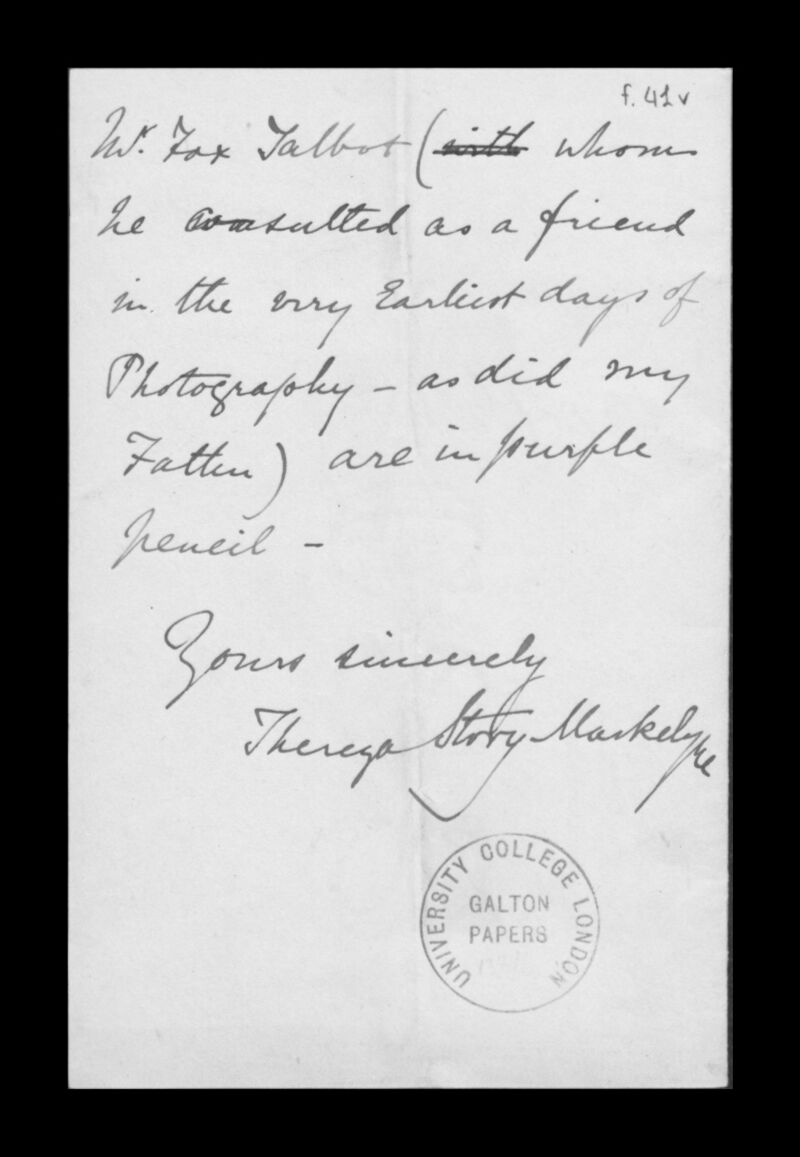 f. 41v
Mr. Fox Talbot (with whom
he consulted as a friend
in the very Earliest days of
Photography – as did my
Father) are in purple
pencil –
Yours sincerely
Thereza Story Maskelyne
UNIVERSITY COLLEGE LONDON
GALTON
PAPERS